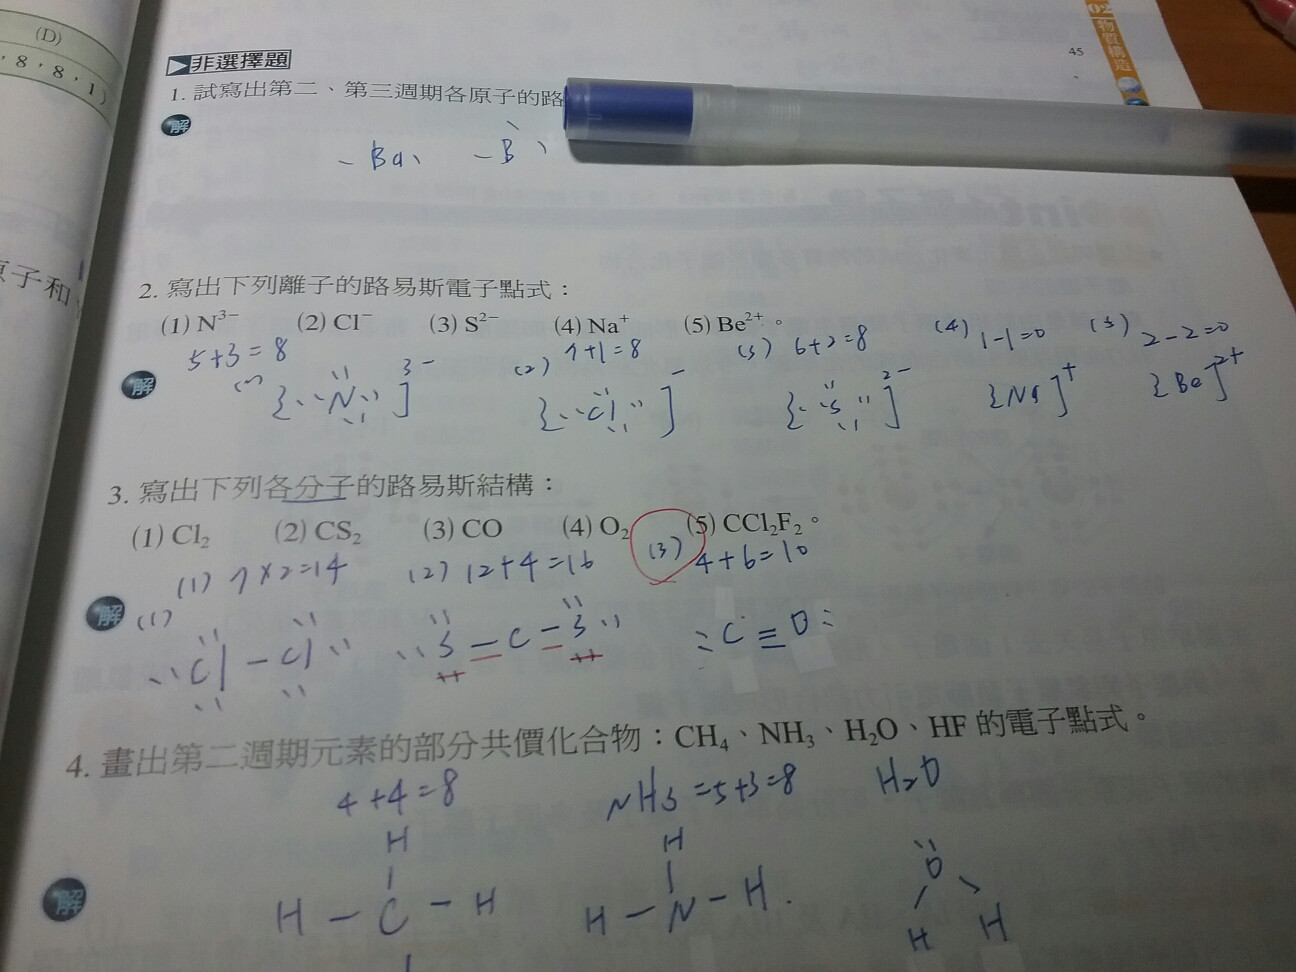 (D)
，8，8，1)
45
02 物質構造
非選擇題
1. 試寫出第二、第三週期各原子的路
解
原子和
2. 寫出下列離子的路易斯電子點式：
(1) N³⁻ (2) Cl⁻ (3) S²⁻ (4) Na⁺ (5) Be²⁺。
5+3=8 7+1=8 (3) 6+2=8 (4) 1-1=0 (5) 2-2=0
解 [N]³⁻ (2) [Cl]⁻ [S]²⁻ [Na]⁺ [Be]²⁺
3. 寫出下列各分子的路易斯結構：
(1) Cl₂ (2) CS₂ (3) CO (4) O₂ (5) CCl₂F₂。
(1) 7×2=14 (2) 12+4=16 (3) 4+6=10
解 (1) Cl－Cl S＝C＝S :C≡O:
4. 畫出第二週期元素的部分共價化合物：CH₄、NH₃、H₂O、HF 的電子點式。
4+4=8 NH3=5+3=8 H2O
H H
解 H－C－H H－N－H. O
H H